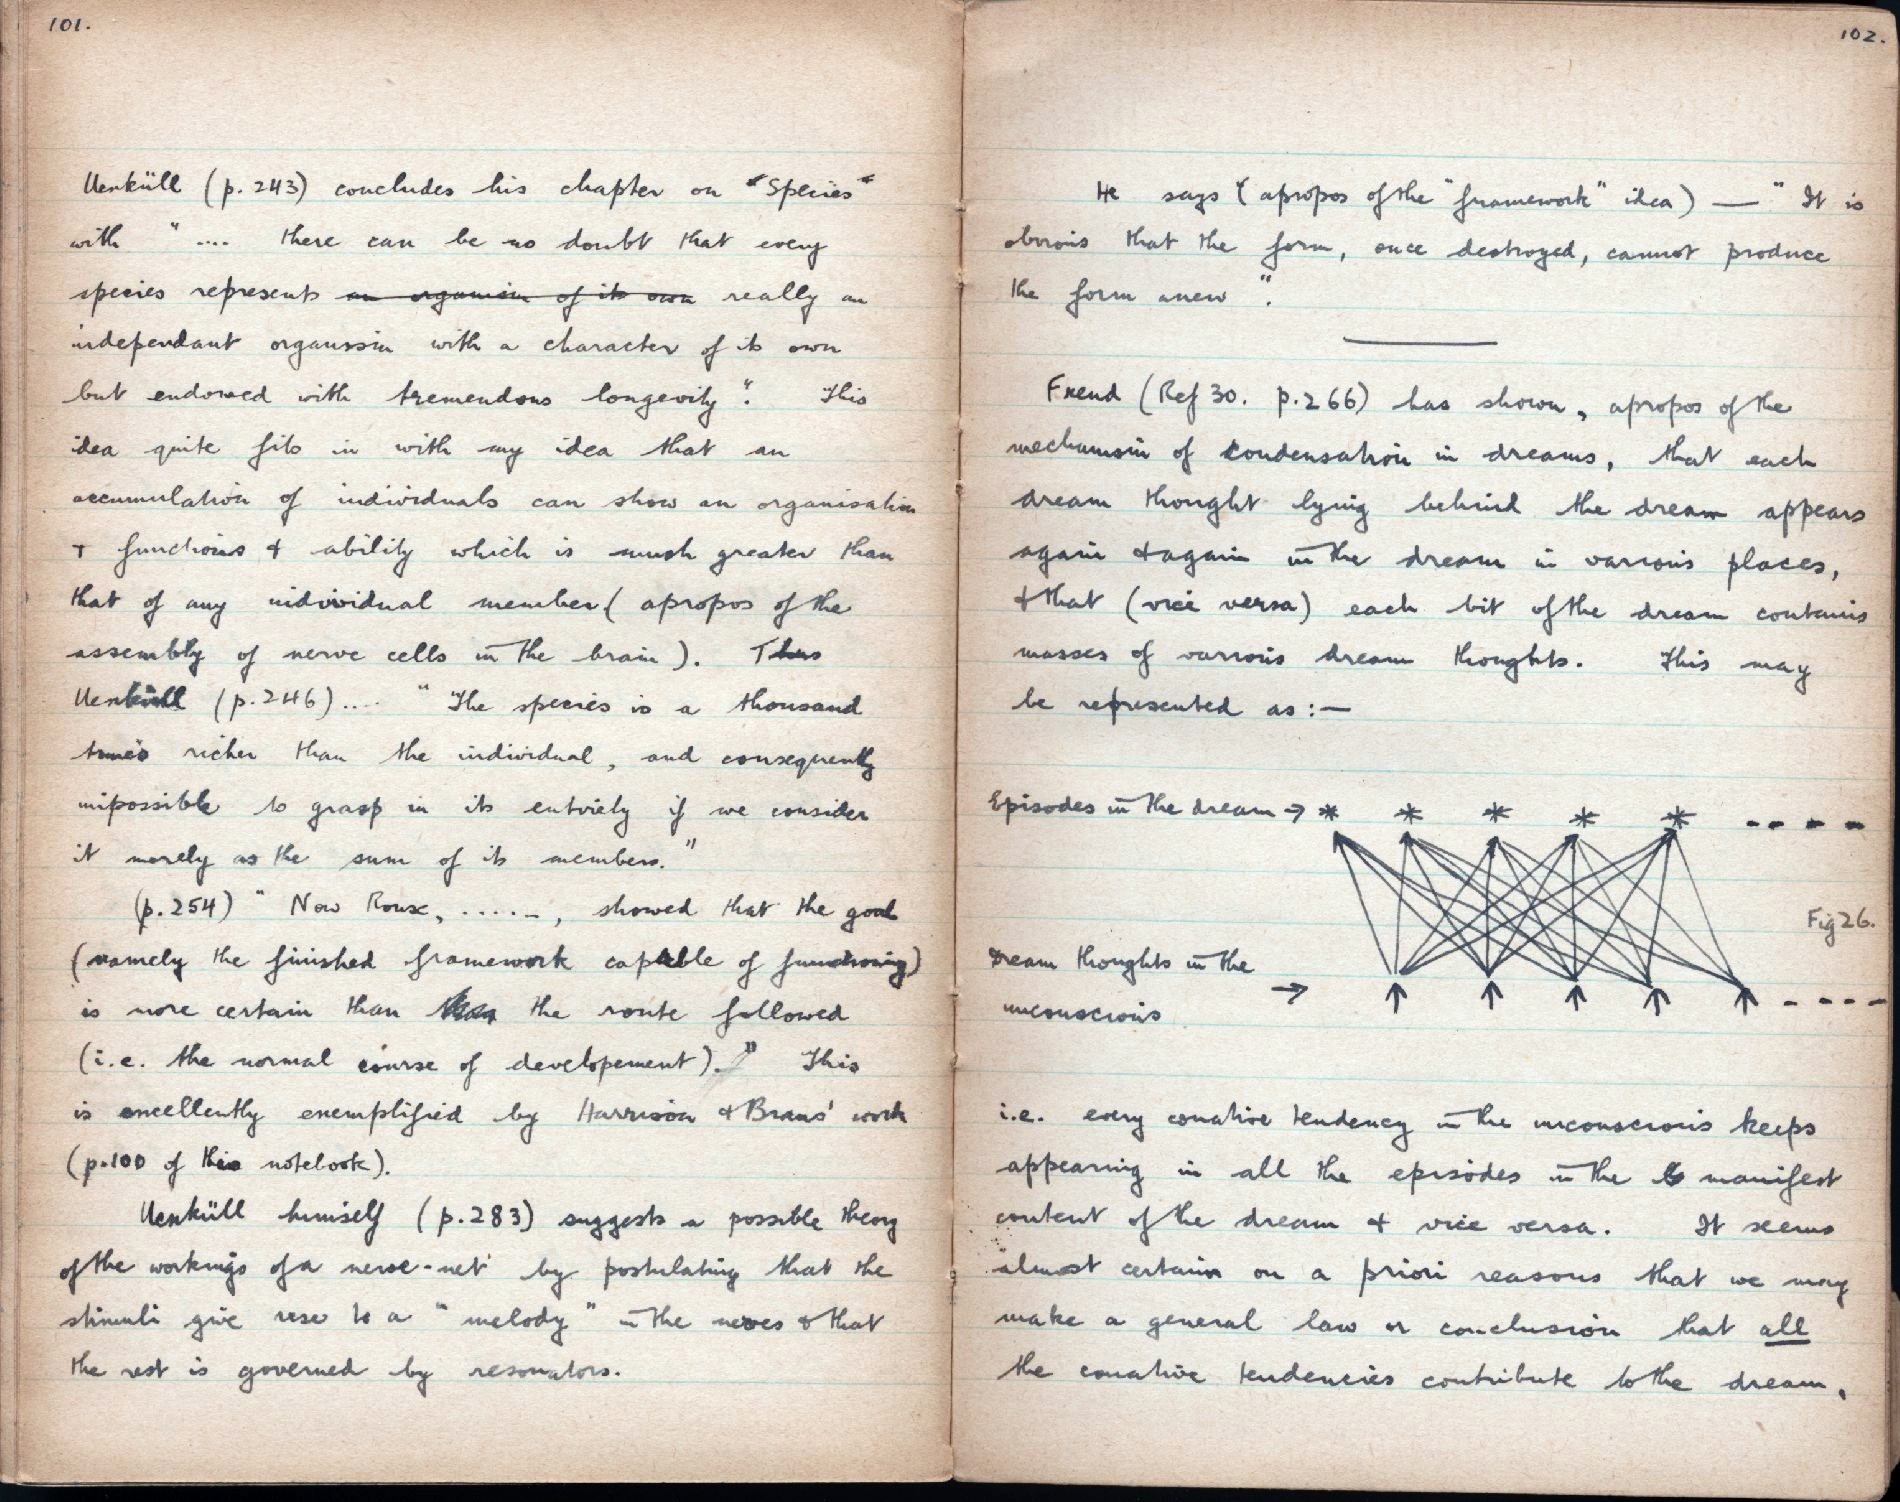 101.
Uexküll (p. 243) concludes his chapter on "Species"
with " .... there can be no doubt that every
species represents an organism of its own really an
independant organism with a character of its own
but endowed with tremendous longevity". This
idea quite fits in with my idea that an
accumulation of individuals can show an organisation
+ functions & ability which is much greater than
that of any individual member (apropos of the
assembly of nerve cells in the brain). Thus
Uexküll (p. 246) .... "The species is a thousand
times richer than the individual, and consequently
impossible to grasp in its entirely if we consider
it merely as the sum of its members."
(p. 254) " Now Roux, ....., showed that the goal
(namely the finished framework capable of functioning)
is more certain than the route followed
(i.e. the normal course of developement)." This
is excellently exemplified by Harrison & Braus' work
(p. 100 of this notebook).
Uexküll himself (p. 283) suggests a possible theory
of the workings of a nerve-net by postulating that the
stimuli give rise to a "melody" in the nerves & that
the rest is governed by resonators.
102.
He says (apropos of the "framework" idea) — " It is
obvious that the form, once destroyed, cannot produce
the form anew".
Freud (Ref 30. p. 266) has shown, apropos of the
mechanism of condensation in dreams, that each
dream thought lying behind the dream appears
again & again in the dream in various places,
& that (vice versa) each bit of the dream contains
masses of various dream thoughts. This may
be represented as :—
Episodes in the dream → * * * * * - - - -
Fig 26.
Dream thoughts in the
unconscious → ↑ ↑ ↑ ↑ ↑ - - - -
i.e. every conative tendency in the unconscious keeps
appearing in all the episodes in the manifest
content of the dream & vice versa. It seems
almost certain on a priori reasons that we may
make a general law or conclusion that all
the conative tendencies contribute to the dream,